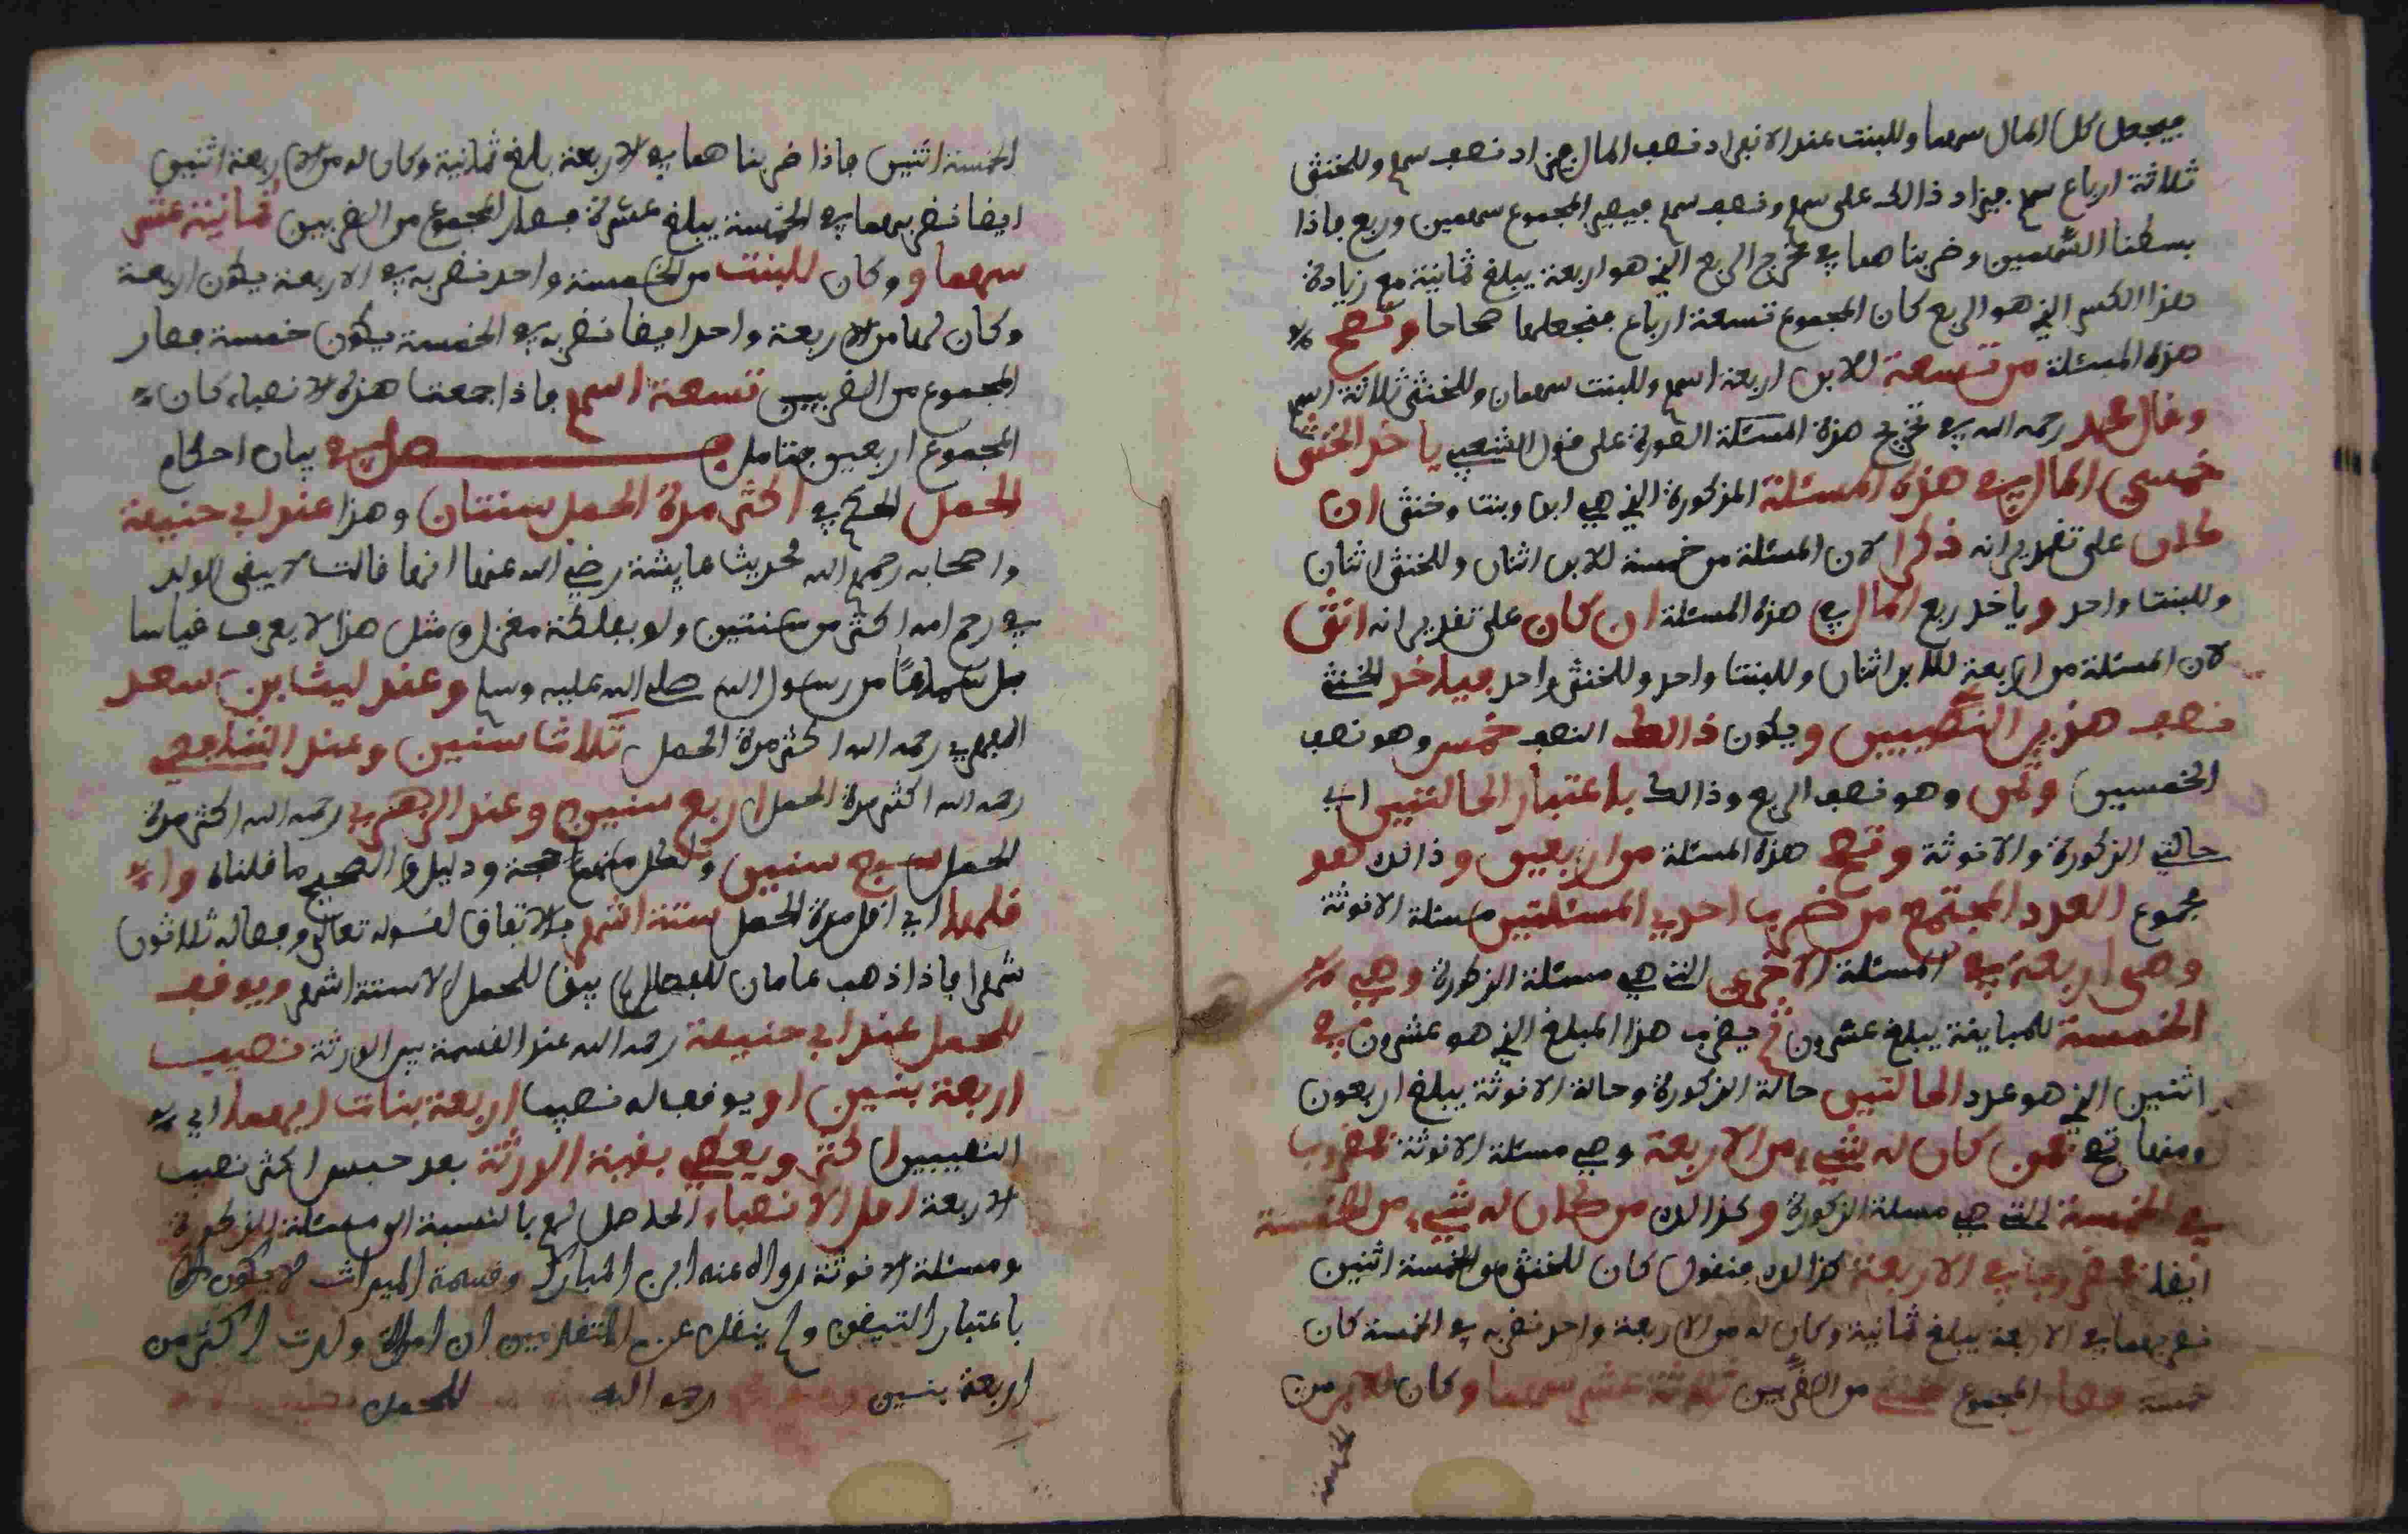 فيجعل كل المال سهما وللبنت عند الانفراد نصف المال فيزاد نصف سهم وللخنثى
ثلاثة ارباع سهم فيزاد ذالك على سهم ونصف سهم فيصير المجموع سهمين وربع فاذا
بسطنا السهمين وضربنا هما في مخرج الربع الذي هو اربعة يبلغ ثمانية مع زيادة
هذا الكسر الذي هو الربع كان المجموع تسعة ارباع فنجعلها صحاحا وتصح
هذه المسئلة من تسعة للابن اربعة اسهم وللبنت سهمان وللخنثى ثلاثة اسهم
وقال محمد رحمه الله في تخريج هذه المسئلة الصورة على قول الشعبي ياخذ الخنثى
خمسي المال في هذه المسئلة المذكورة التي هي ابن وبنت وخنثى ان
كان على تقدير انه ذكرا لان المسئلة من خمسة للابن اثنان وللخنثى اثنان
وللبنت واحد وياخذ ربع المال في هذه المسئلة ان كان على تقدير انه انثى
لان المسئلة من اربعة للابن اثنان وللبنت واحد وللخنثى واحد فياخذ الخنثى
نصف هذين النصيبين ويكون ذالك النصف خمس وهو نصف
الخمسين وثمن وهو نصف الربع وذالك باعتبار الحالتين اي
حالتي الذكورة والانوثة وتصح هذه المسئلة من اربعين وذالك هو
مجموع العدد المجتمع من ضرب احدي المسئلتين مسئلة الانوثة
وهي اربعة في المسئلة الاخرى التي هي مسئلة الذكورة وهي
الخمسة للمباينة يبلغ عشرون ثم يضرب هذا المبلغ الذي هو عشرون في
اثنين الذي هو عدد الحالتين حالة الذكورة وحالة الانوثة يبلغ اربعون
ومنها تصح فمن كان له شيء من الاربعة وهي مسئلة الانوثة فمضروب
في الخمسة التي هي مسئلة الذكورة وكذالك من كان له شيء من الخمسة
ايضا فمضروبا في الاربعة كذالك فنقول كان للخنثى من الخمسة اثنين
نضربهما في الاربعة يبلغ ثمانية وكان له من الاربعة واحد نضربه في الخمسة كان
خمسة فصار المجموع من الضربين ثلاثة عشر سهما وكان للابن من
الخمسة
الخمسة اثنين فاذا ضربنا هما في الاربعة يبلغ ثمانية وكان له من الاربعة اثنين
ايضا نضربهما في الخمسة يبلغ عشرة فصار المجموع من الضربين ثمانية عشر
سهما ووكان للبنت من الخمسة واحد نضربه في الاربعة يكون اربعة
وكان لها من الاربعة واحد ايضا نضربه في الخمسة يكون خمسة فصار
المجموع من الضربين تسعة اسهم فاذا جمعت هذه الانصباء كان
المجموع اربعين فتامل فصل في بيان احكام
الحمل الحكم في اكثر مدة الحمل سنتان وهذا عند ابي حنيفة
واصحابه رحمهم الله لحديث عايشة رضي الله عنها انها قالت لا يبقى الولد
في رحم امه اكثر من سنتين ولو بفلكة مغزل ومثل هذا لا يعرف قياسا
بل سماعًا من رسول الله صلى الله عليه وسلم وعند ليث بن سعد
الفهمي رحمه الله اكثر مدة الحمل ثلاث سنين وعند الشافعي
رحمه الله اكثر مدة الحمل اربع سنين وعند الزهري رحمه الله اكثر مدة
الحمل سبع سنين ولكل منهم حجة ودليل والصحيح ما قلناه وا
قلها اي اقل مدة الحمل ستة اشهر بالاتفاق لقوله تعالى وفصاله ثلاثون
شهرا فاذا ذهب عامان للفصال لم يبق للحمل الا ستة اشهر ويوقف
للحمل عند ابي حنيفة رحمه الله عند القسمة بين الورثة نصيب
اربعة بنين او يوقف له نصيب اربعة بنات ايهما اي
النصيبين اكثر ويعطى بقية الورثة بعد حبس اكثر نصيب
الاربعة اقل الانصباء الحاصل لهم بالنسبة الى مسئلة الذكورة
ومسئلة الانوثة رواه عنه ابن المبارك وقسمة الميراث لا يكون الا
باعتبار التيقن ولم ينقل عن المتقدمين ان امراة ولدت اكثر من
اربعة بنين رحمه الله للحمل